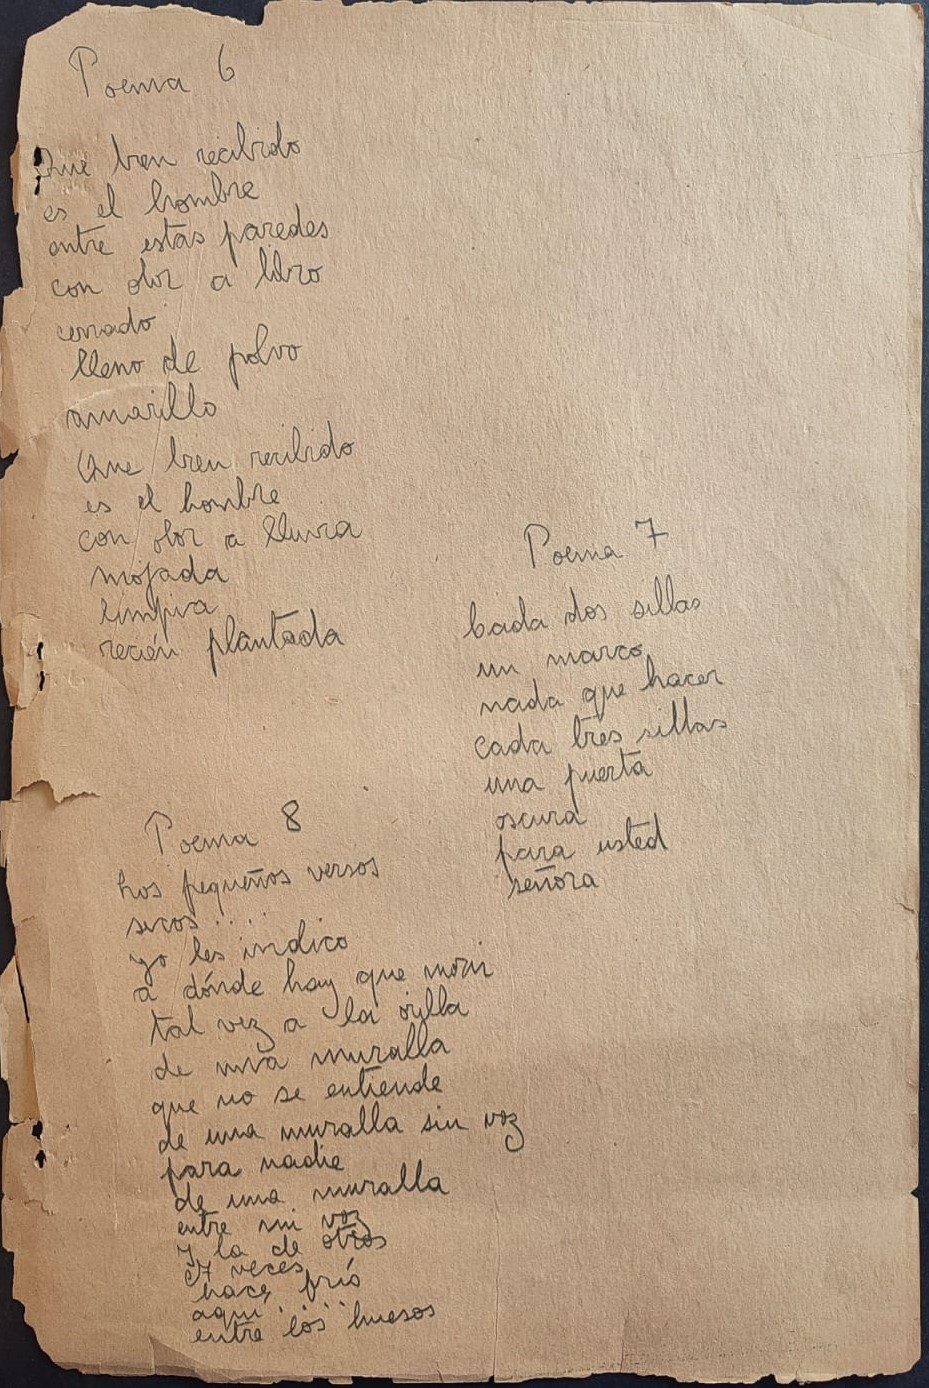 Poema 6
Que bien recibido
es el hombre
entre estas paredes
con olor a libro
cerrado
lleno de polvo
amarillo
Que bien recibido
es el hombre
con olor a lluvia
mojada
limpia
recién plantada
Poema 7
Cada dos sillas
un marco
nada que hacer
cada tres sillas
una puerta
oscura
para usted
señora
Poema 8
Los pequeños versos
secos.....
yo les indico
a dónde hay que morir
tal vez a la orilla
de una muralla
que no se entiende
de una muralla sin voz
para nadie
de una muralla
entre mi voz
y la de otros
veces
hace frío
aquí.....
entre los huesos